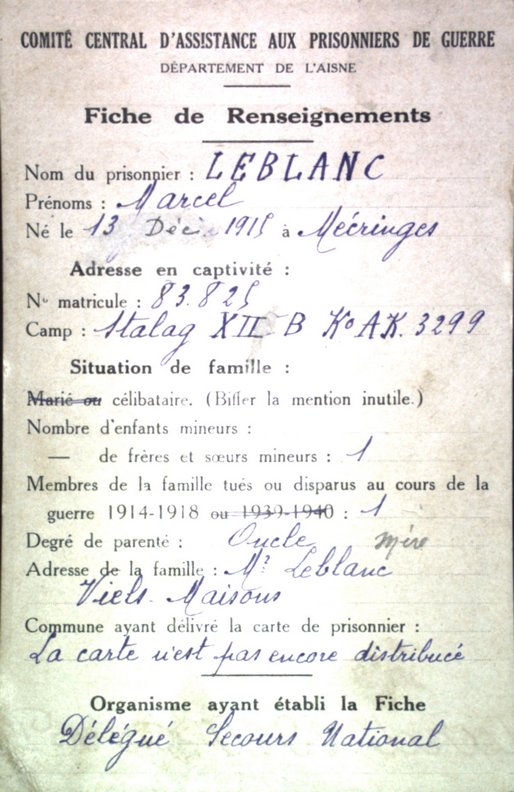 COMITÉ CENTRAL D'ASSISTANCE AUX PRISONNIERS DE GUERRE
DÉPARTEMENT DE L'AISNE
Fiche de Renseignements
Nom du prisonnier : LEBLANC
Prénoms : Marcel
Né le 13 Déc. 1915 à Mécringes
Adresse en captivité :
No matricule : 83.825
Camp : Stalag XII B Ko AK. 3299
Situation de famille :
Marié ou célibataire. (Biffer la mention inutile.)
Nombre d'enfants mineurs :
— de frères et sœurs mineurs : 1
Membres de la famille tués ou disparus au cours de la
guerre 1914-1918 ou 1939-1940 : 1
Degré de parenté : Oncle mère
Adresse de la famille : Mr Leblanc
Viels-Maisons
Commune ayant délivré la carte de prisonnier :
La carte n'est pas encore distribuée
Organisme ayant établi la Fiche
Délégué Secours National